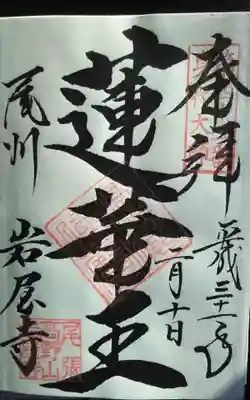 奉拝
平成三十一年
二月十日
蓮華王
尾州
岩屋寺
尾張